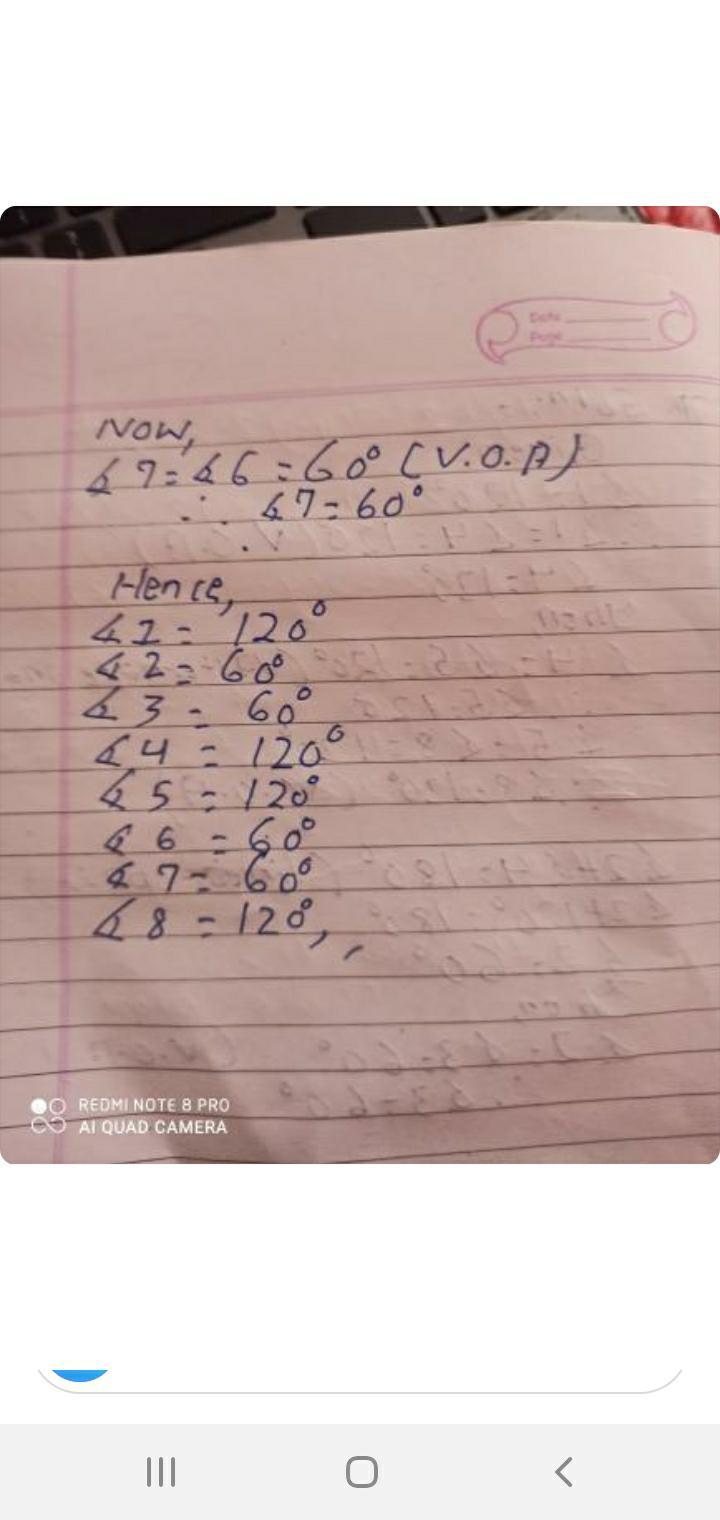 Date
Page
Now,
∡7=∡6=60° (V.O.A)
∴ ∡7=60°
Hence,
∡1= 120°
∡2= 60°
∡3= 60°
∡4 = 120°
∡5 = 120°
∡6 = 60°
∡7= 60°
∡8 = 120°,,
REDMI NOTE 8 PRO
AI QUAD CAMERA